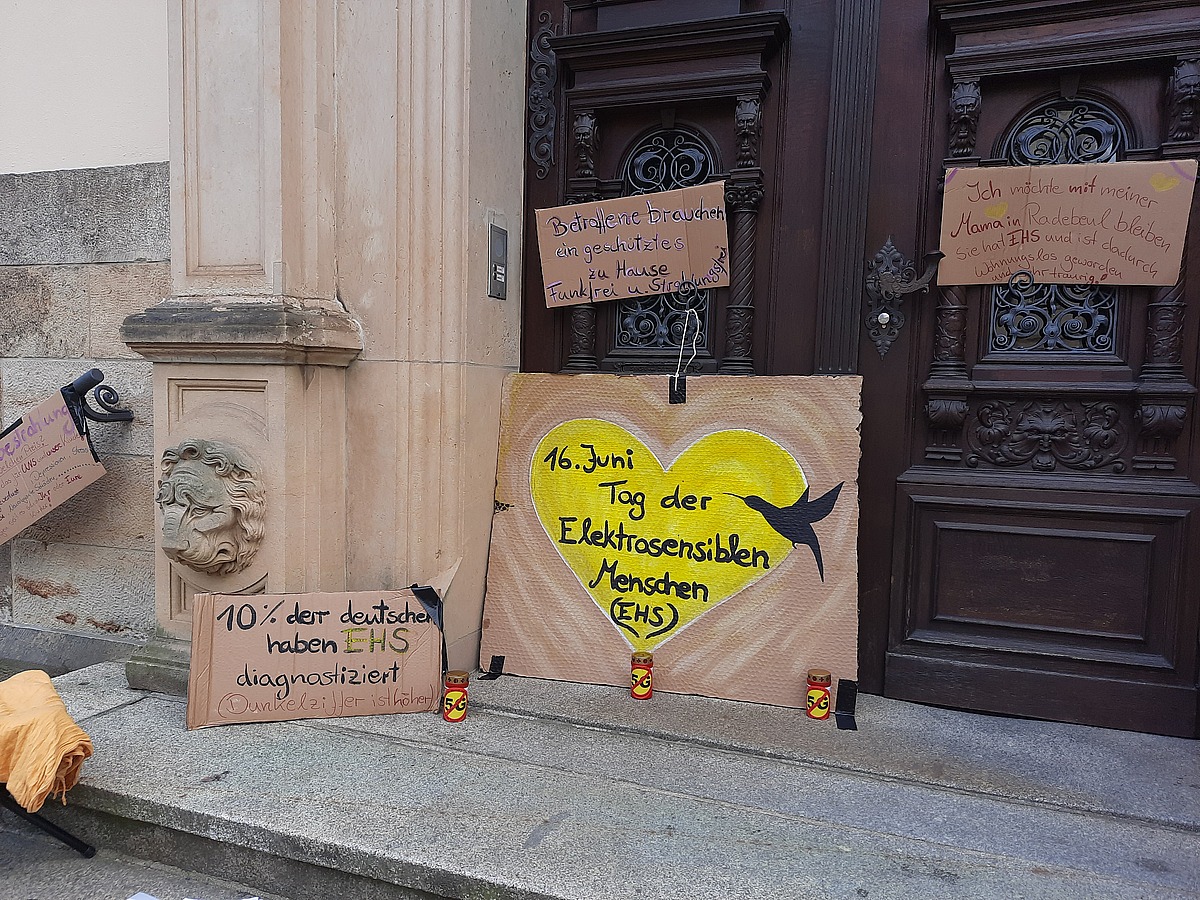 Betroffene brauchen
ein geschütztes
zu Hause
Funkfrei u. Strahlungsfrei
Ich möchte mit meiner
Mama in Radebeul bleiben
Sie hat EHS und ist dadurch
Wohnungslos geworden
und sehr traurig!
16. Juni
Tag der
Elektrosensiblen
Menschen
(EHS)
10% der deutschen
haben EHS
diagnostiziert
(Dunkelziffer ist höher)
5G
5G
5G